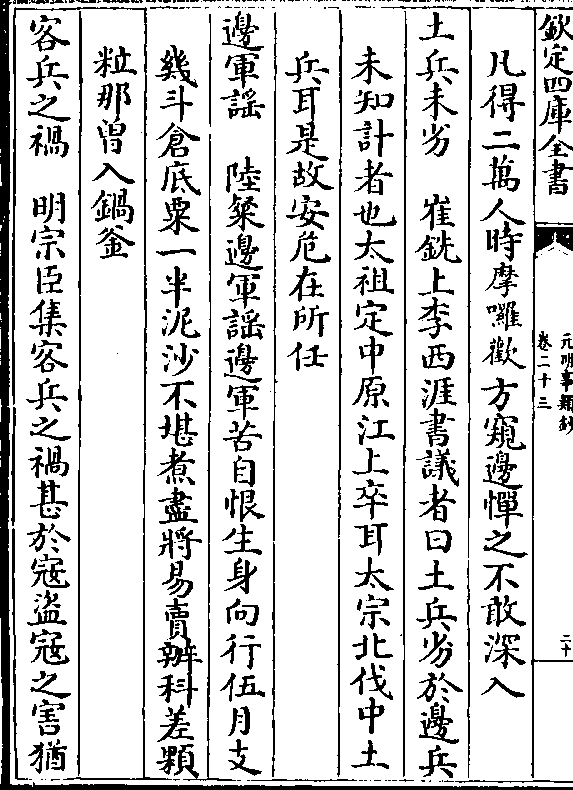 欽定四庫全書
元明事類鈔
卷二十三
二十
凡得二萬人時摩囉歡方窺邊憚之不敢深入
土兵未劣　崔銑上李西涯書議者曰土兵劣於邊兵
未知計者也太祖定中原江上卒耳太宗北伐中土
兵耳是故安危在所任
邊軍謡　陸粲邊軍謡邊軍苦自恨生身向行伍月支
幾斗倉底粟一半泥沙不堪煮盡將易賣辦科差顆
粒那曽入鍋釜
客兵之禍　明宗臣集客兵之禍甚於宼盜宼之害猶